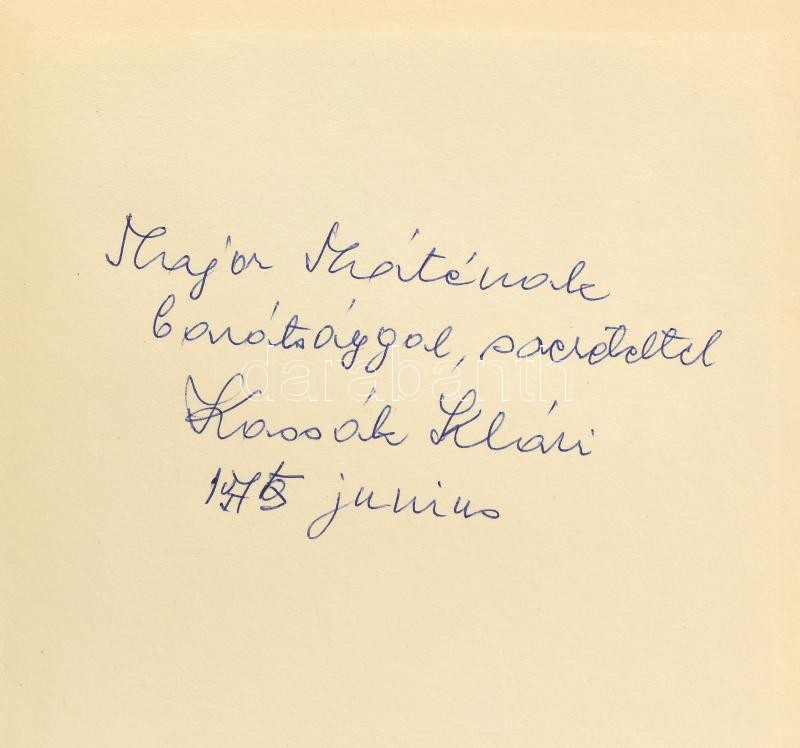 Major Máténak
barátsággal, szeretettel
darabanth
Kassák Klári
junius